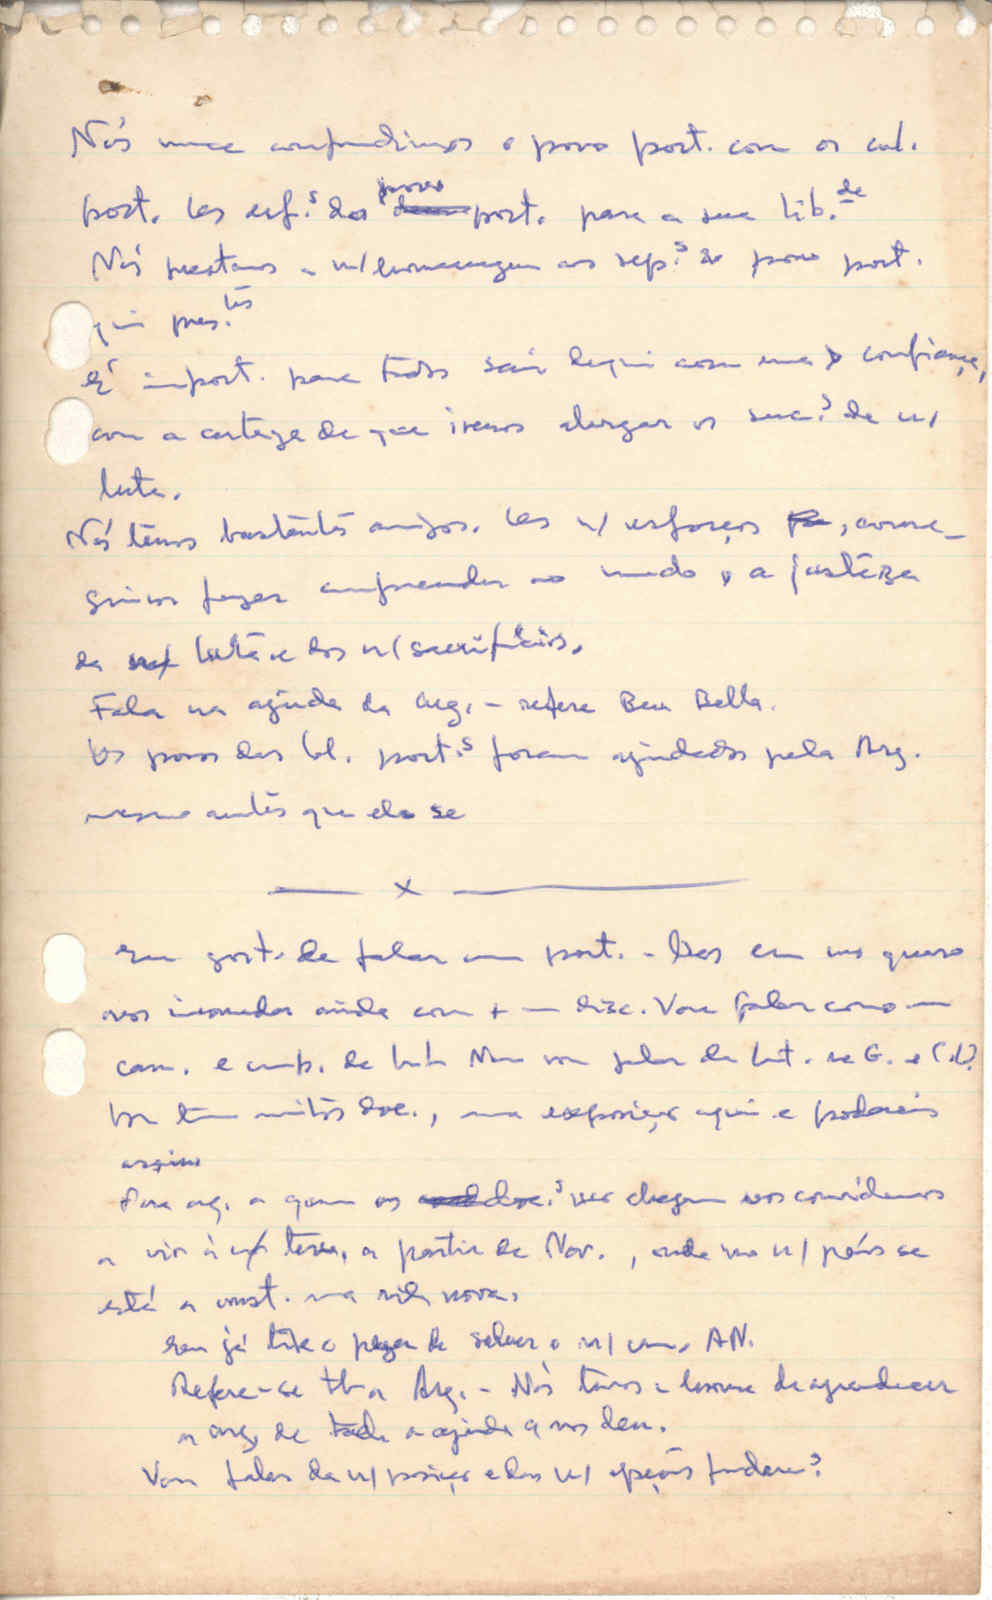 Nós nunca confundimos o povo port. com os col.
port. os esf.s dos povo port. para a sua lib.de
Nós prestamos a n/ homenagem aos rep.s do povo port.
qui pres.tes
É import. para todos sair daqui com uma confiança,
com a certeza de que iremos alargar os suc.s da n/
luta.
Nós temos bastantes amigos. os n/ esforços, conse-
guimos fazer compreender ao mundo, a justeza
da luta e dos n/ sacrifícios.
Fala na ajuda da Arg. - refere Ben Bella.
Os povos das Col. port.s foram ajudados pela Arg.
mesmo antes que ela se
x
Eu gost. de falar em port. - Mas eu não quero
vos incomodar ainda com + um disc. Vou falar como um
cam. e comp. de luta Não vou falar da lut. na G. e C.V.
tem muitos doc., uma exposição aqui e podereis
assim
Para arg. a quem os não chegam vos convidamos
a vir à n/ terra, a partir de Nov., onde no n/ país se
está a const. uma vida nova.
Eu já tive o prazer de saber o n/ cam. AN.
Refere-se tb a Arg. - Nós temos a honra de agradecer
a arg. de toda a ajuda q nos deu.
Vou falar da n/ posição e das n/ opções fundam.s